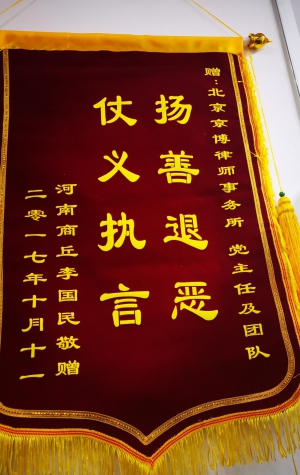 赠:北京京博律师事务所 党主任及团队
扬善退恶
仗义执言
河南商丘李国民敬赠
二零一七年十月十一